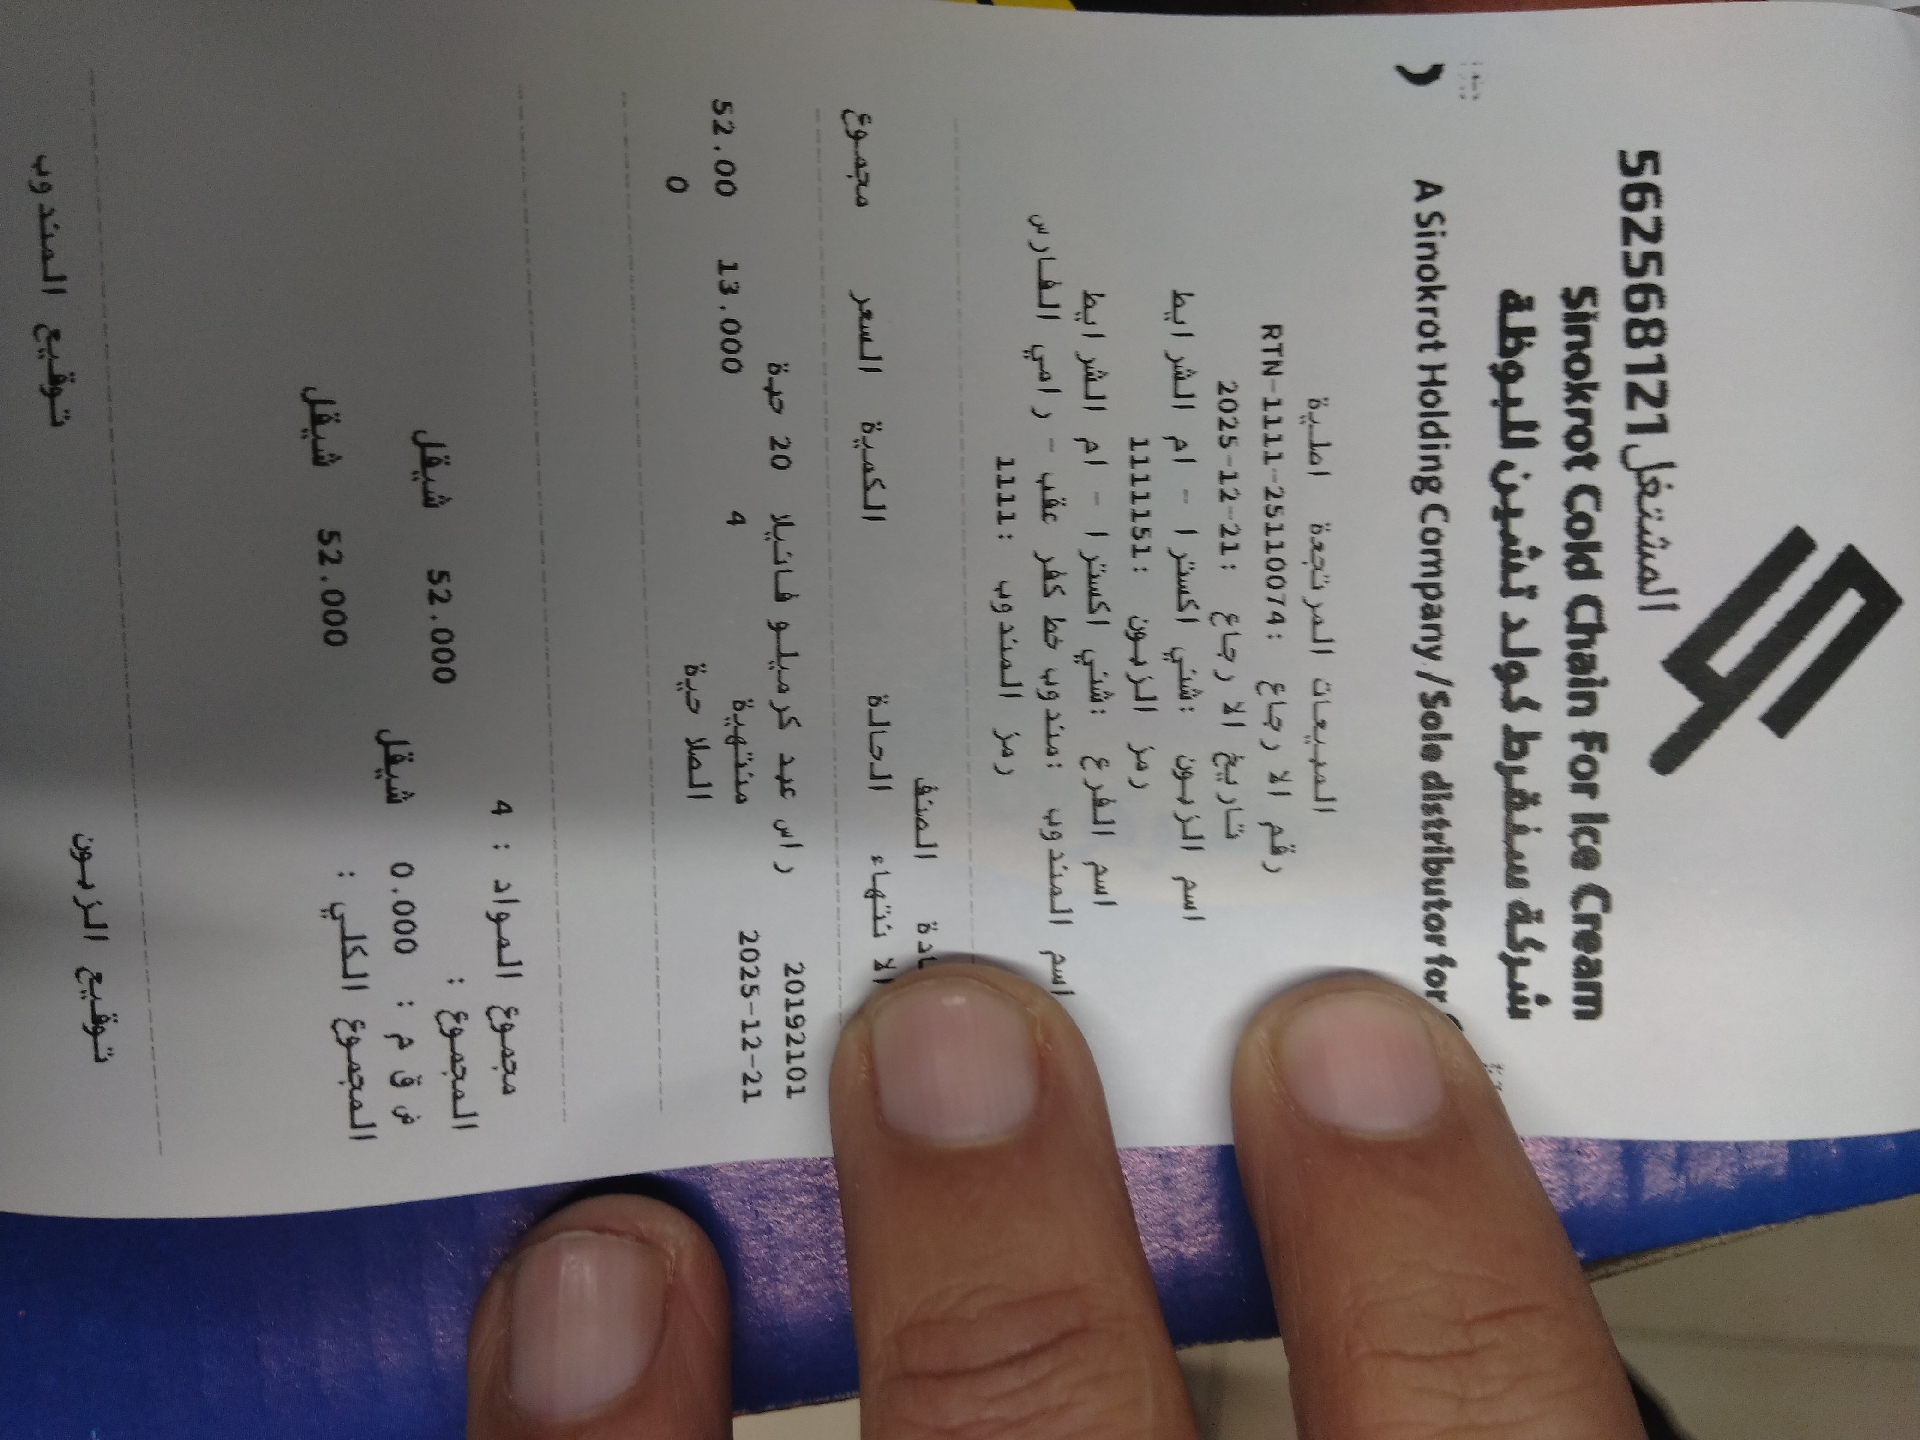 المشتغل 562568121
Sinokrot Cold Chain For Ice Cream
شركة سنقرط كولد تشين للبوظة
A Sinokrot Holding Company / Sole distributor for
المبيعات المرتجعة اصلية
رقم الارجاع :RTN-1111-25110074
تاريخ الارجاع :2025-12-21
اسم الزبون :شني اكسترا - ام الشرايط
رمز الزبون :1111151
اسم الفرع :شني اكسترا - ام الشرايط
اسم المندوب :مندوب خط كفر عقب - رامي الفارس
رمز المندوب :1111
الصنف
الانتهاء الحالة الكمية السعر مجموع
20192101 راس عبد كرميلو فانيلا 20 حبة
2025-12-21 منتهية 4 13.000 52.00
الصلاحية 0
مجموع المواد : 4
المجموع : 52.000 شيقل
ض ق م : 0.000 شيقل
المجموع الكلي : 52.000 شيقل
توقيع الزبون توقيع المندوب